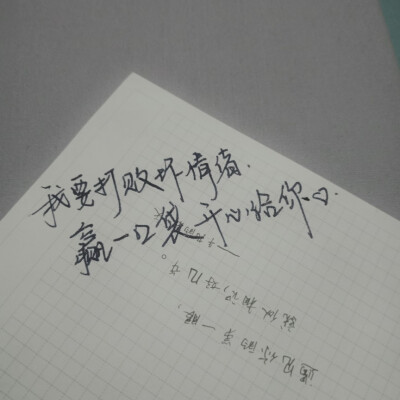 我要打败坏情绪.
赢一口袋开心给你♡.
遇见你的第一眼,
就似相识,好几年。